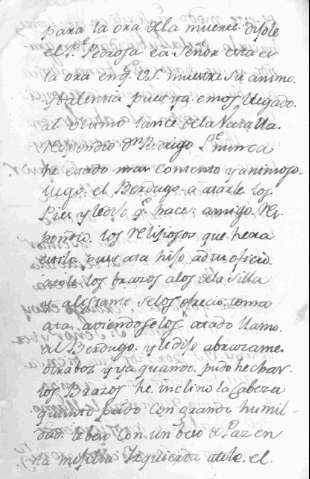 para la ora de la muerte. dijole
el Pe. Pedrosa ea Señor esta es
la ora en q. VS. muestre su animo.
y valentia pues ya emos llegado
al ultimo lance de la
Respondio Dn. Rodrigo nunca
he estado mas contento y animoso.
luego el Berdugo a atarle los
Pies y le dijo q. haces amigo. Res
pondio. los Religiosos que
pues ata hijo, ad tu oficio
los brazos a los de la silla
y se los ofrecio como
ata. aviendoselos atado llamo
al Berdugo. y le dijo abrazame.
y ya quando. pudo hechar
los Brazos he inclino la cabeza
quanto pudo con grande humil-
dad. le beso con un beso de Paz en
la mejilla Izquierda atole. el